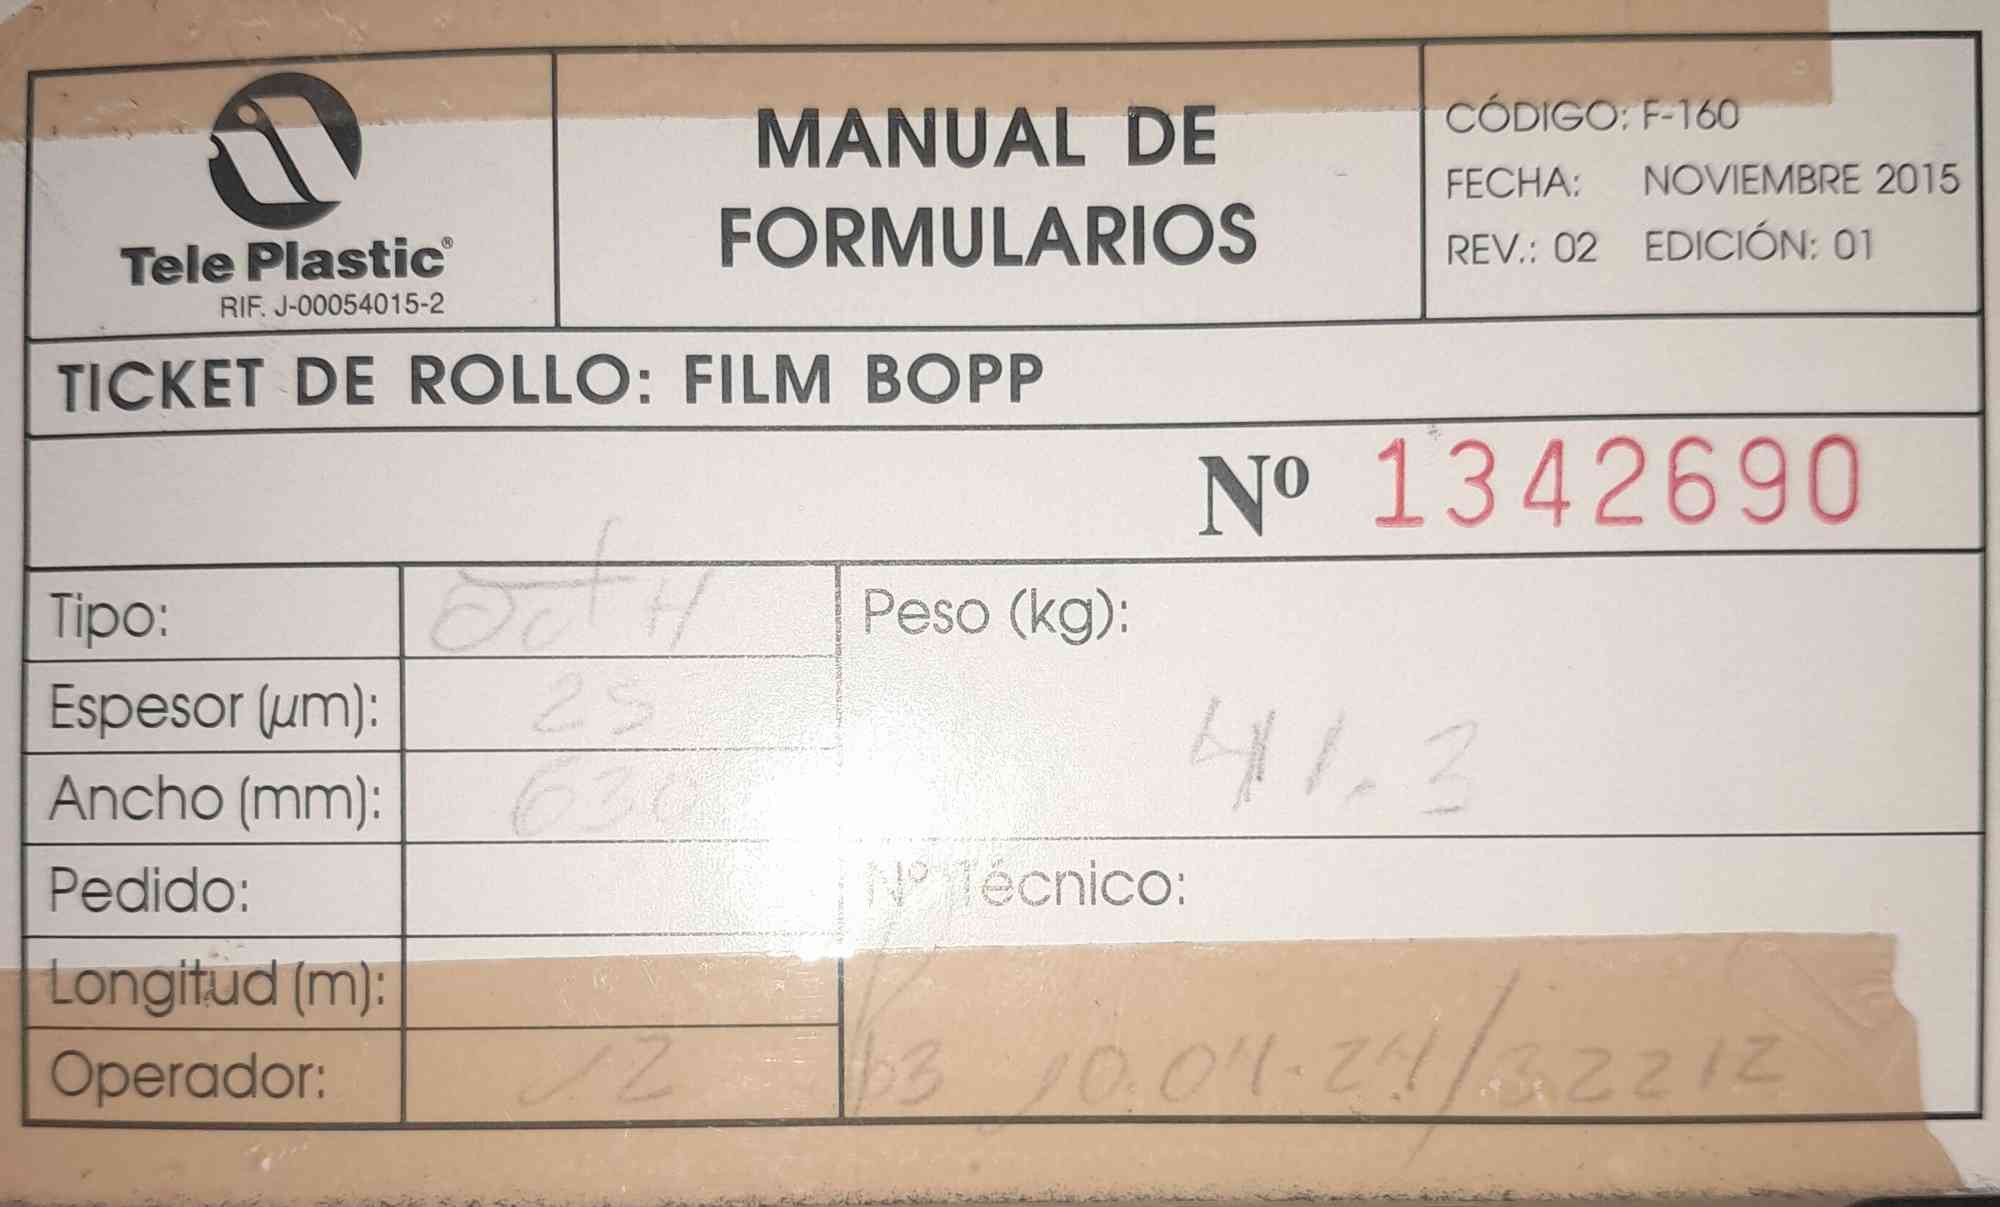 Tele Plastic®
RIF. J-00054015-2
MANUAL DE
FORMULARIOS
CÓDIGO: F-160
FECHA: NOVIEMBRE 2015
REV.: 02 EDICIÓN: 01
TICKET DE ROLLO: FILM BOPP
Nº 1342690
Tipo:
Espesor (µm): 25
Ancho (mm): 630
Pedido:
Longitud (m):
Operador:
Peso (kg):
41.3
Nº Técnico:
10.04.24/32212